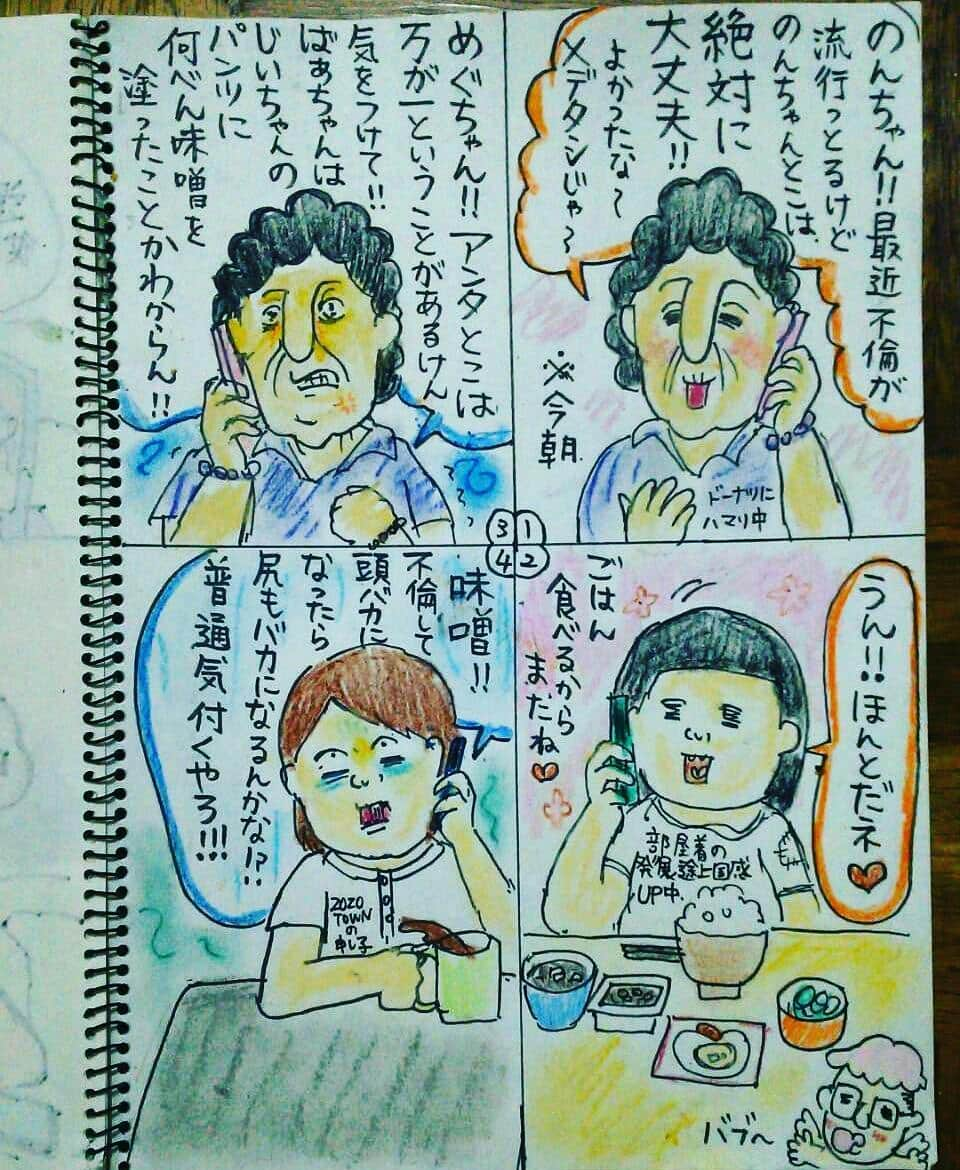 のんちゃん!!最近不倫が
流行っとるけど
のんちゃんとこは、
絶対に
大丈夫!!
よかったな〜
メデタシじゃ〜
※今朝
ドーナツに
ハマリ中
1
うん!!ほんとだネ
ごはん
食べるから
またね
部屋着の
発展途上国感
UP中
バブ〜
2
めぐちゃん!!アンタとこは
万が一ということがあるけん
気をつけて!!
ばぁちゃんは
じいちゃんの
パンツに
何べん味噌を
塗ったことかわからん!!
3
味噌!!
不倫して
頭バカに
なったら
尻もバカになるんかな!?
普通気付くやろ!!!
ZOZO
TOWN
の
申し子
4